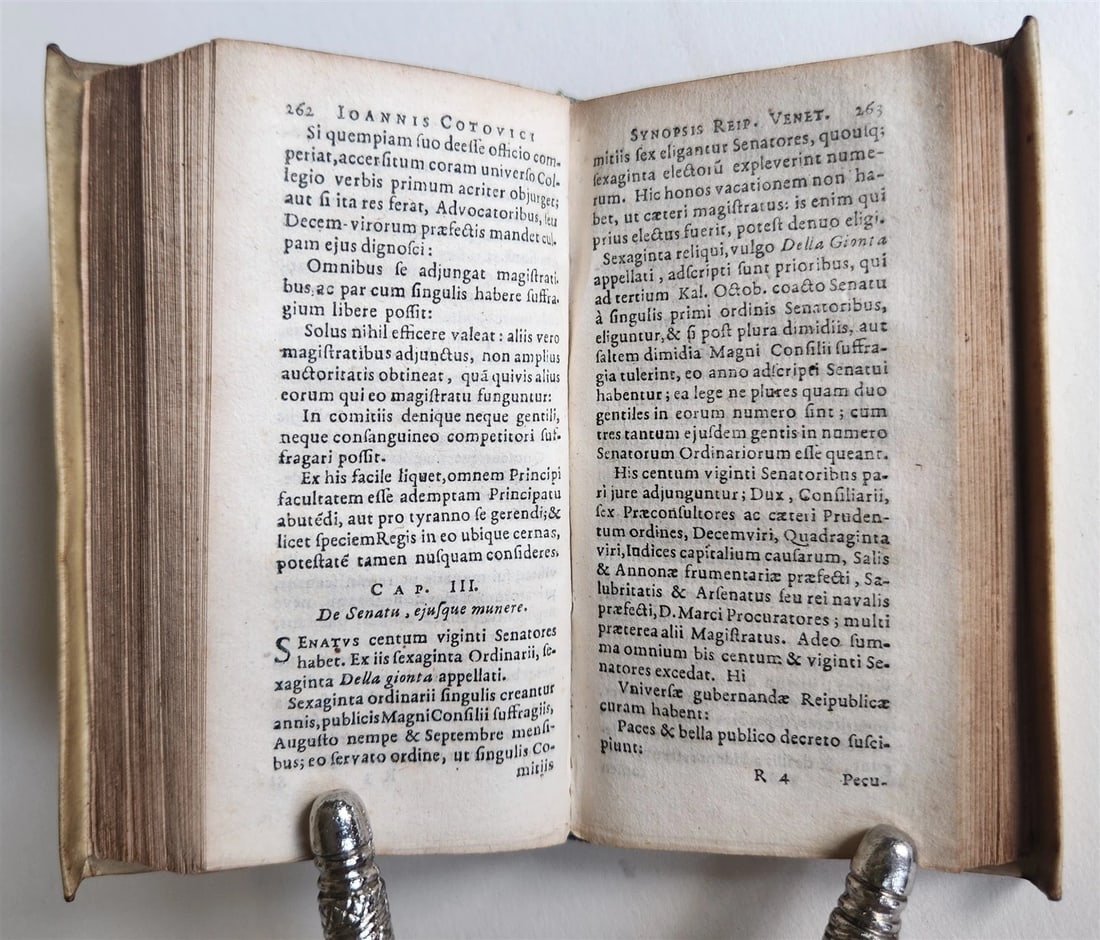 262 IOANNIS COTOVICI
Si quempiam ſuo deeſſe officio com-
periat, accerſitum coram univerſo Col-
legio verbis primum acriter objurget;
aut ſi ita res ferat, Advocatoribus, ſeu
Decem-virorum præfectis mandet cul-
pam ejus dignoſci:
Omnibus ſe adjungat magiſtrati-
bus, ac par cum ſingulis habere ſuffra-
gium libere poſſit:
Solus nihil efficere valeat: aliis vero
magiſtratibus adjunctus, non amplius
auctoritatis obtineat, quā quivis alius
eorum qui eo magiſtratu funguntur:
In comitiis denique neque gentili,
neque conſanguineo competitori ſuf-
fragari poſſit.
Ex his facile liquet, omnem Principi
facultatem eſſe ademptam Principatu
abutēdi, aut pro tyranno ſe gerendi; &
licet ſpeciem Regis in eo ubique cernas,
poteſtatē tamen nuſquam conſideres.
CAP. III.
De Senatu, ejuſque munere.
SENATVS centum viginti Senatores
habet. Ex iis ſexaginta Ordinarii, ſe-
xaginta Della gionta appellati.
Sexaginta ordinarii ſingulis creantur
annis, publicis Magni Conſilii ſuffragiis,
Auguſto nempe & Septembre menſi-
bus; eo ſervato ordine, ut ſingulis Co-
mitiis
SYNOPSIS REIP. VENET. 263
mitiis ſex eligantur Senatores, quouſq;
ſexaginta electorū expleverint nume-
rum. Hic honos vacationem non ha-
bet, ut cæteri magiſtratus: is enim qui
prius electus fuerit, poteſt denuo eligi.
Sexaginta reliqui, vulgo Della Gionta
appellati, adſcripti ſunt prioribus, qui
ad tertium Kal. Octob. coacto Senatu
à ſingulis primi ordinis Senatoribus,
eliguntur, & ſi poſt plura dimidiis, aut
ſaltem dimidia Magni Conſilii ſuffra-
gia tulerint, eo anno adſcripti Senatui
habentur; ea lege ne plures quam duo
gentiles in eorum numero ſint; cum
tres tantum ejuſdem gentis in numero
Senatorum Ordinariorum eſſe queant.
His centum viginti Senatoribus pa-
ri jure adjunguntur; Dux, Conſiliarii,
ſex Præconſultores ac cæteri Pruden-
tum ordines, Decemviri, Quadraginta
viri, Iudices capitalium cauſarum, Salis
& Annonæ frumentariæ præfecti, Sa-
lubritatis & Arſenatus ſeu rei navalis
præfecti, D. Marci Procuratores; multi
præterea alii Magiſtratus. Adeo ſum-
ma omnium bis centum & viginti Se-
natores excedat. Hi
Vniverſæ gubernandæ Reipublicæ
curam habent:
Paces & bella publico decreto ſuſci-
piunt:
R 4 Pecu-